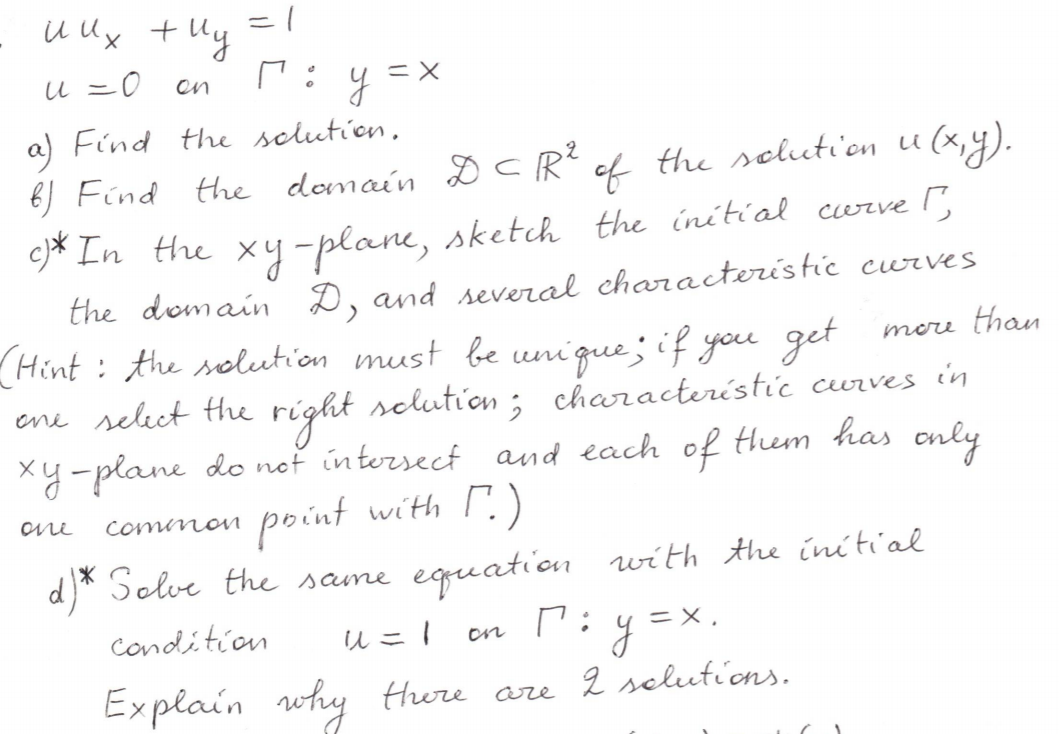 u u_x + u_y = 1
u = 0 on Γ : y = x
a) Find the solution.
b) Find the domain D ⊂ R² of the solution u(x,y).
c)* In the xy-plane, sketch the initial curve Γ,
the domain D, and several characteristic curves
(Hint : the solution must be unique; if you get more than
one select the right solution ; characteristic curves in
xy-plane do not intersect and each of them has only
one common point with Γ.)
d)* Solve the same equation with the initial
condition u = 1 on Γ : y = x.
Explain why there are 2 solutions.